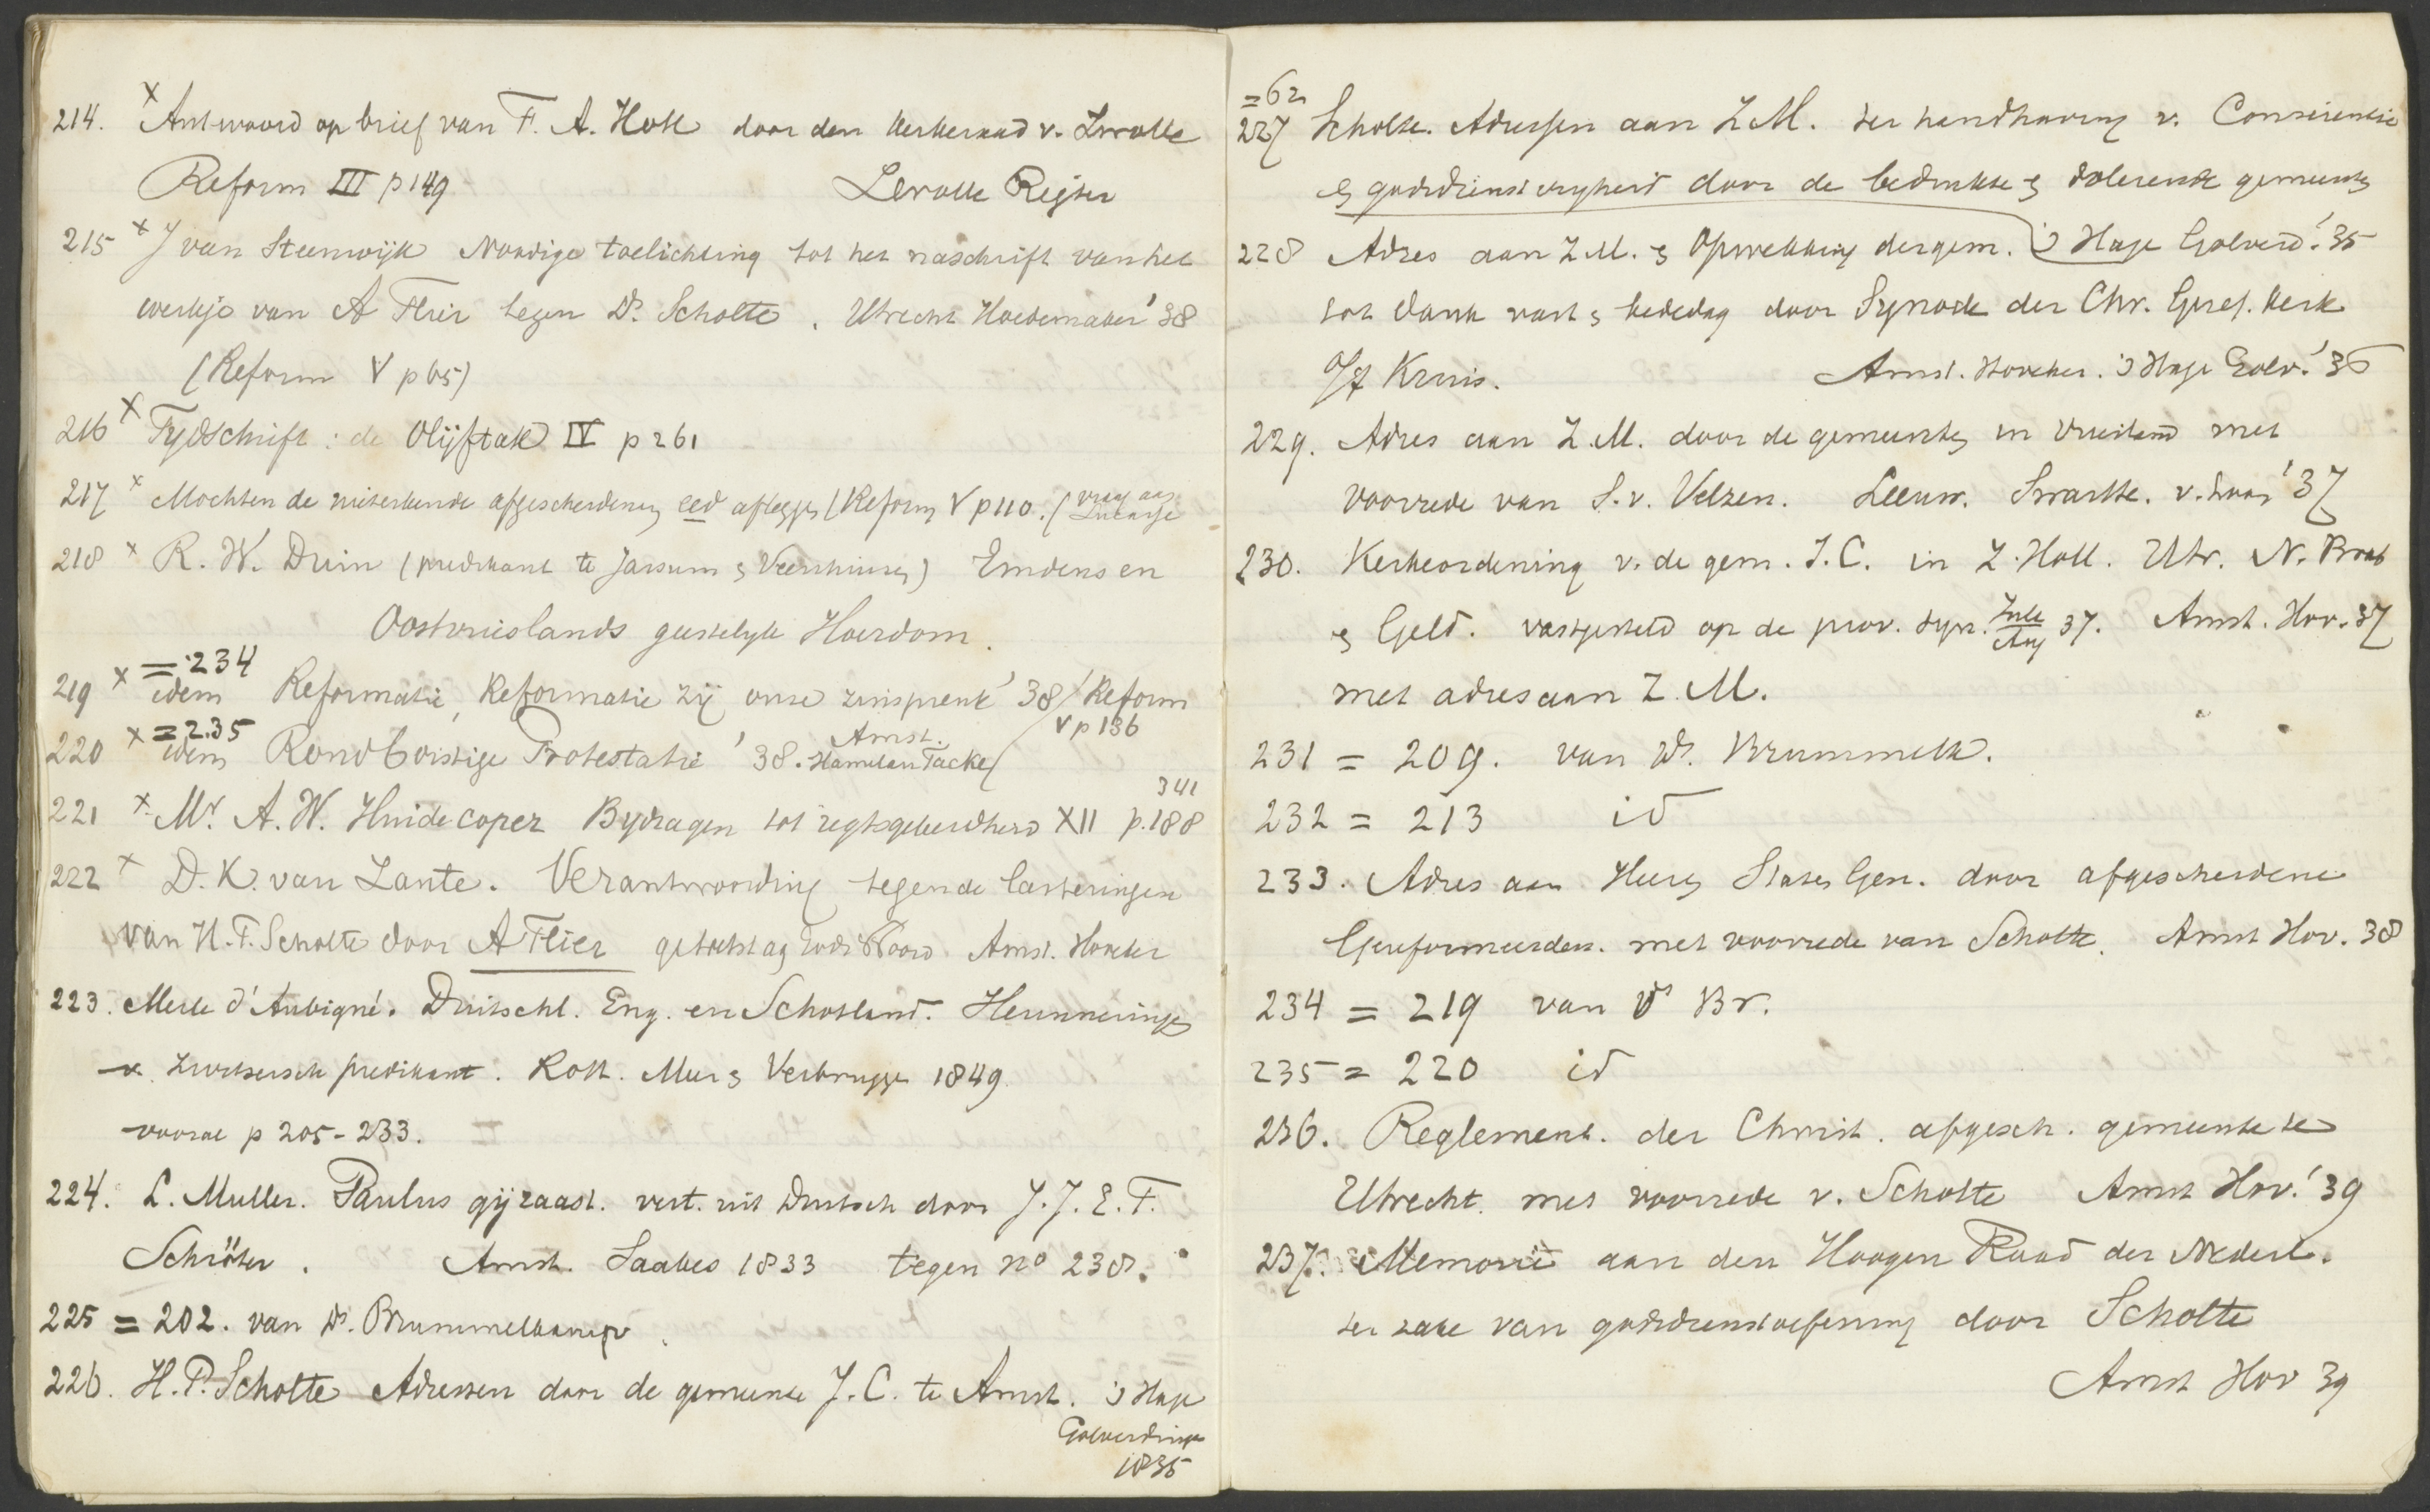 x
214. Antwoord op brief van F. A. Holl door den kerkeraad v. Zwolle
Reform III p 149 Zwolle Rejser
215 x J van Steenwijk Noodige toelichting tot het naschrift van het
werkje van A Flier tegen Ds. Scholte. Utrecht Hoedemaker '38
(Reform V p 65)
216 x Tydschrift: de Olijftak IV p 261
217 x Mochten de afgescheidenen eed afleggen (Reform V p 110. (vraag aan
218 x R. W. Duin (predikant te Jarsum & Veenhusen) Emdens en
Oostvrieslands geestelyk Hoerdom.
= 234
219 x idem Reformatie, Reformatie zij onse zinspreuk '38 / Reform
V p 136
x = 235
220 idem Rondborstige Protestatie '38. Amst. Hamelau Tacke
341
221 x Mr. A. W. Huidecoper Bydragen tot regtsgeleerdheid XII p. 188
222 x D. K. van Lante. Verantwoording tegen de lasteringen
van H. P. Scholte door A Flier getoetst aan Gods Woord Amst. Hoveker
223. Merle d'Aubigné. Duitschl. Eng. en Schotland. Herinneringen
v. Zwitsersch predikant. Rott. Meer & Verbrugge 1849
vooral p 205-233.
224. L. Muller. Paulus gij raast. vert. uit Duitsch door J. J. E. F.
Schröter. Amst. Saakes 1833 tegen no 238.
225 = 202. van Ds. Brummelkamp.
226. H. P. Scholte Adressen door de gemeente J. C. te Amst. 's Hage
Golverdinge
1835
= 62
227 Scholte. Adressen aan Z M. ter handhaving v. Consciensie
& godsdienstvryheid door de bedrukte & dolerende gemeenten
's Hage Golverd. '35
228 Adres aan Z. M. & Opwekking der gem.
tot dank vast & bededag door Synode der Chr. Geref. Kerk
o/h Kruis. Amst. Hoveker. 's Hage Golv. '36
229. Adres aan Z. M. door de gemeenten in Vriesland met
voorrede van S. v. Velzen. Leeuw. '37
230. Kerkeordening v. de gem. J. C. in Z. Holl. Utr. N. Brab
& Geld. vastgesteld op de prov. syn. Julie/Aug 37. Amst. Hov. 37
met adres aan Z. M.
231 = 209. van Ds. Brummelk.
232 = 213 id
233. Adres aan Heeren Staten Gen. door afgescheidene
Gereformeerden. met voorrede van Scholte. Amst Hov. 38
234 = 219 van Ds Br.
235 = 220 id
236. Reglement. der Christ. afgesch. gemeente te
Utrecht. met voorrede v. Scholte Amst Hov. '39
237. Memorie aan den Hoogen Raad der Nederl.
ter zake van godsdienstoefening door Scholte
Amst Hov 39